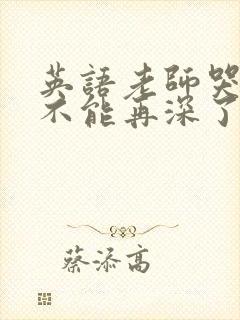 英語老師哭
不能再深了
蔡添高